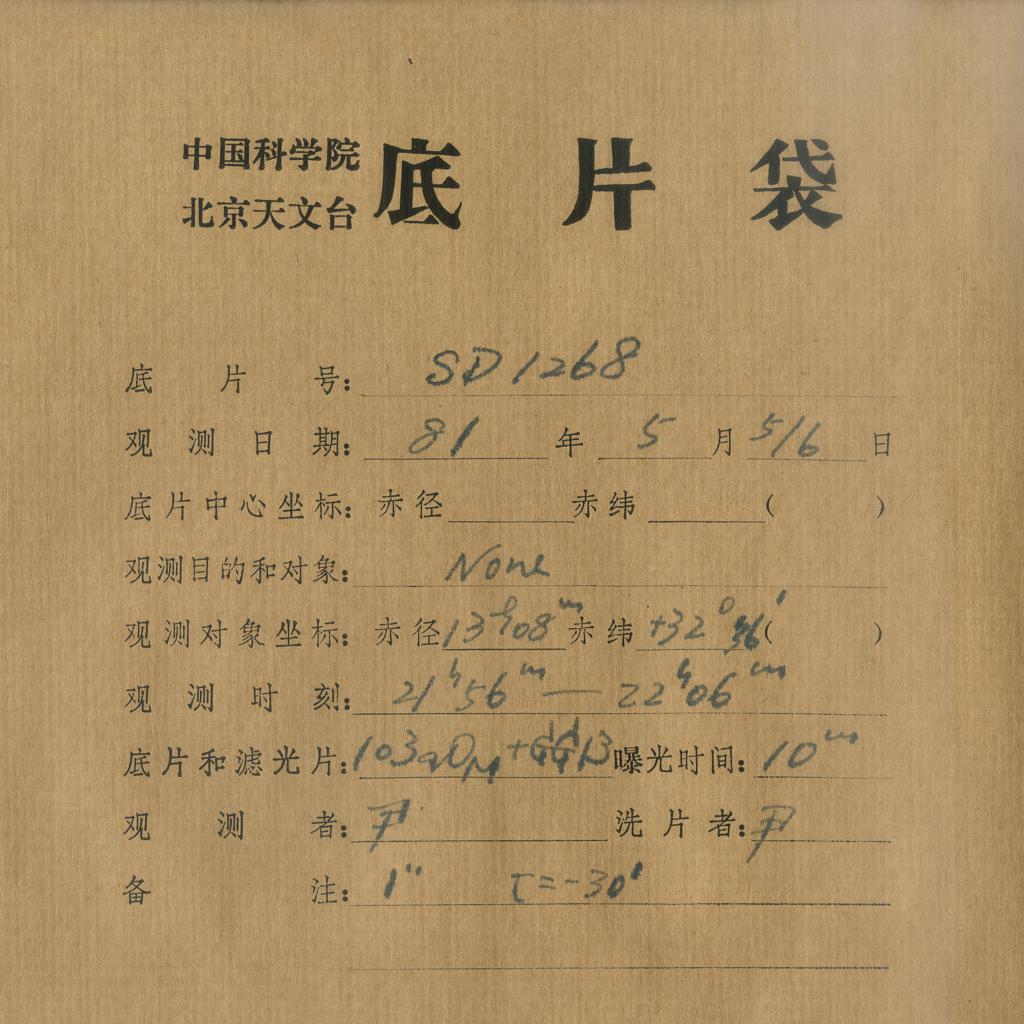 中国科学院
北京天文台 底片袋
底片号: SD1268
观测日期: 81年5月5/6日
底片中心坐标: 赤径 赤纬 ( )
观测目的和对象: None
观测对象坐标: 赤径13h08m赤纬+32°36′( )
观测时刻: 21h56m—22h06m
底片和滤光片: 103aO+GG13 曝光时间: 10m
观测者: 尹 洗片者: 尹
备注: 1″ τ=-30′